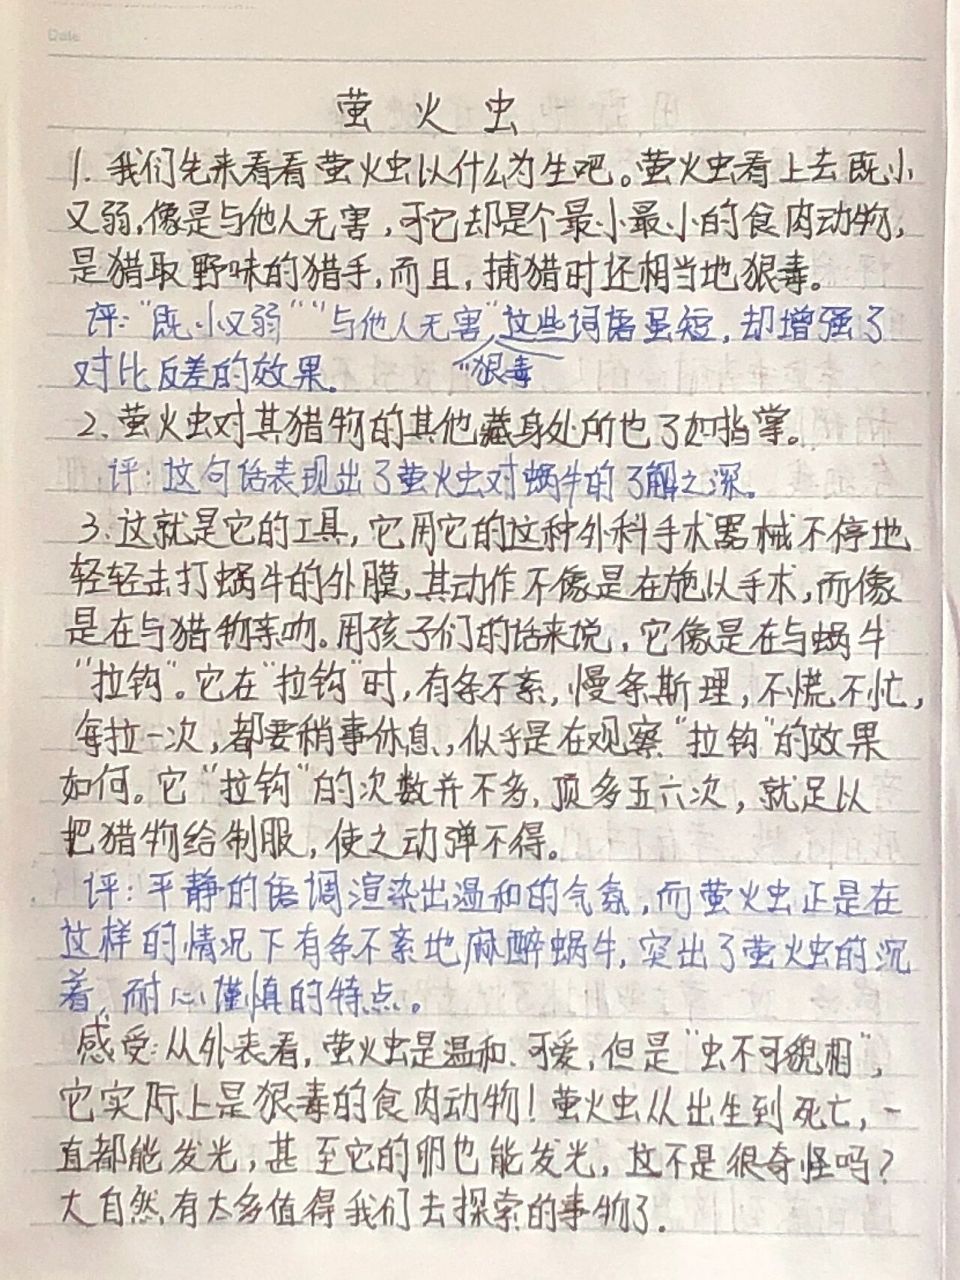 Date
萤火虫
1. 我们先来看看萤火虫以什么为生吧。萤火虫看上去既小
又弱,像是与他人无害,可它却是个最小最小的食肉动物,
是猎取野味的猎手,而且,捕猎时还相当地狠毒。
评:“既小又弱”“与他人无害”这些词语虽短,却增强了
“狠毒
对比反差的效果。
2、萤火虫对其猎物的其他藏身处所也了如指掌。
评:这句话表现出了萤火虫对蜗牛的了解之深。
3.这就是它的工具,它用它的这种外科手术器械不停地
轻轻击打蜗牛的外膜,其动作不像是在施以手术,而像
是在与猎物亲吻。用孩子们的话来说,它像是在与蜗牛
“拉钩”。它在“拉钩”时,有条不紊,慢条斯理,不慌不忙,
每拉一次,都要稍事休息,似乎是在观察“拉钩”的效果
如何。它“拉钩”的次数并不多,顶多五六次,就足以
把猎物给制服,使之动弹不得。
评:平静的语调渲染出温和的气氛,而萤火虫正是在
这样的情况下有条不紊地麻醉蜗牛,突出了萤火虫的沉
着,耐心谨慎的特点。
感受:从外表看,萤火虫是温和、可爱,但是“虫不可貌相”,
它实际上是狠毒的食肉动物!萤火虫从出生到死亡,一
直都能发光,甚至它的卵也能发光,这不是很奇怪吗?
大自然有太多值得我们去探索的事物了.